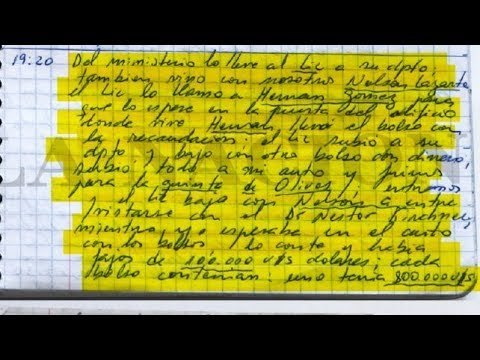 19:20 Del ministerio lo lleve al Lic a su dpto,
tambien vino con nosotros Nelson Lazarte
el Lic lo llamo a Hernan Gomez para
que lo espere en la puerta del edificio
donde vive Hernan, llevó el bolso con
la recaudacion; el Lic subió a su
dpto y bajo con otro bolso con dinero,
subio todo a mi auto y fuimos
para la quinta de Olivos, entramos
y el Lic bajo con Nelson a entre
vistarse con el Dr Nestor Kirchner,
mientras yo esperaba en el auto
con los bolsos, lo conte y habia
fajos de 100.000 U/S dolares; cada
bolso contenian: uno tenia 800.000 U/S
LA NACION